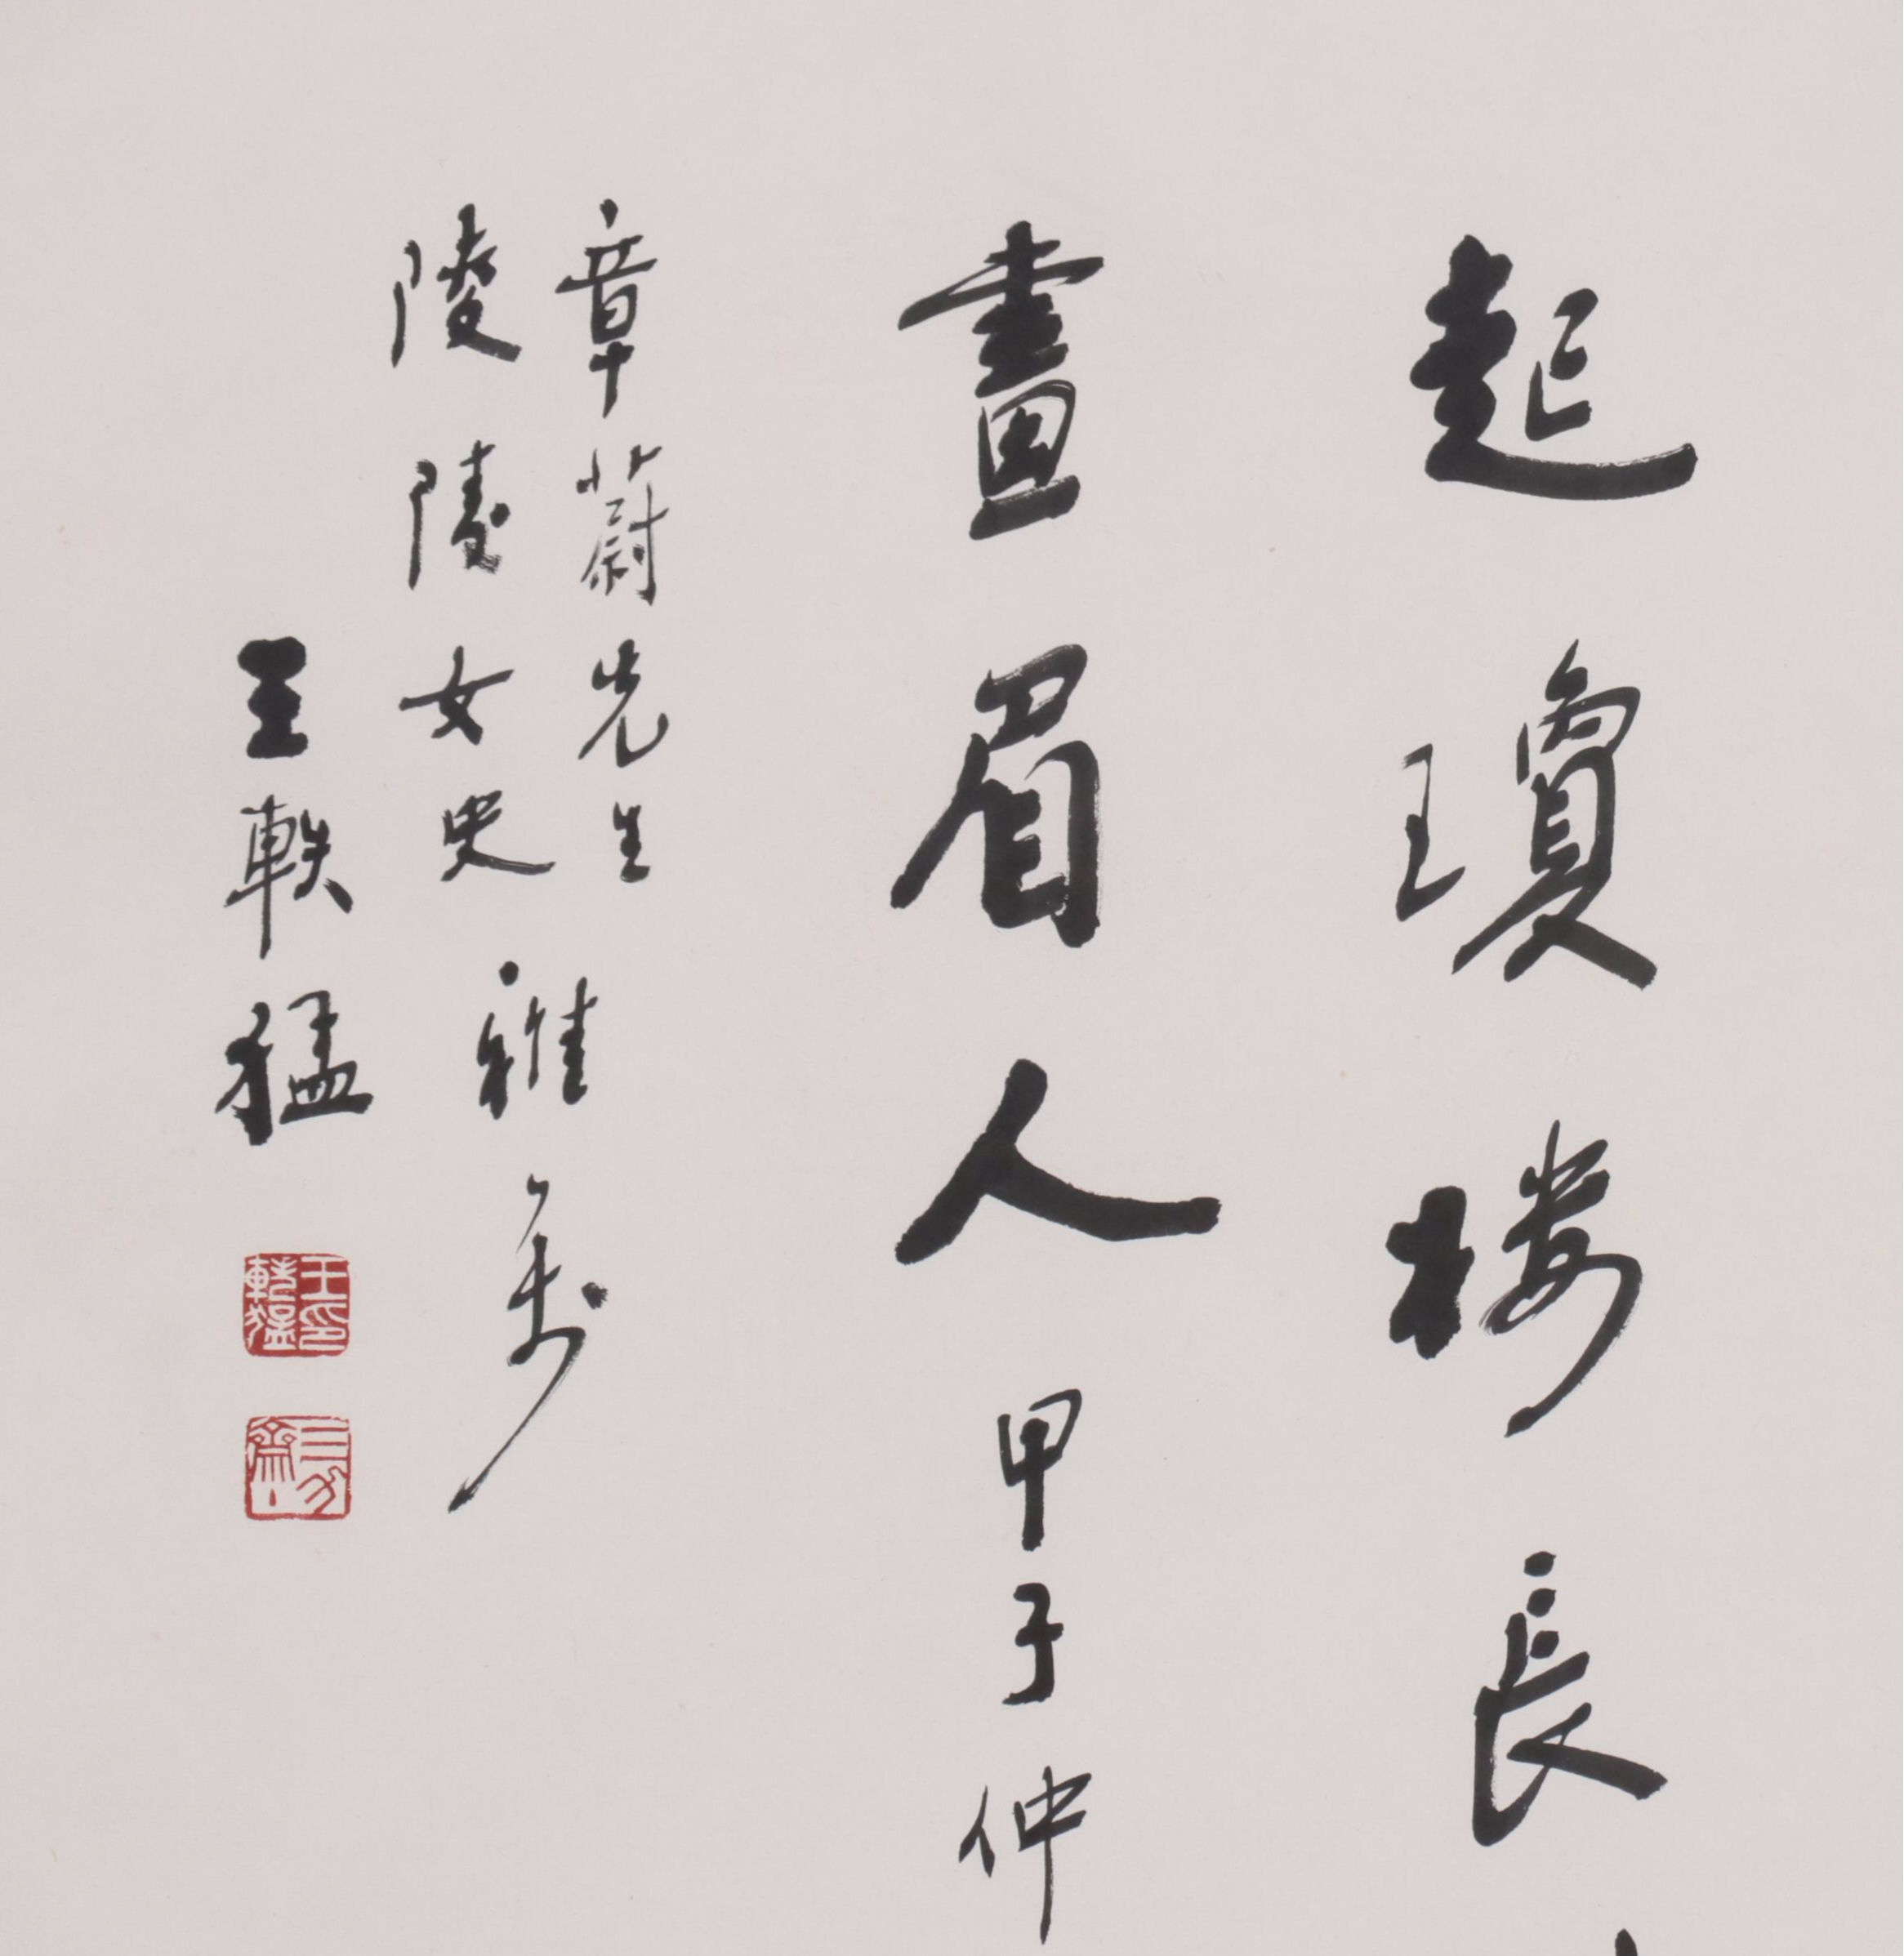 起瓊樓長
畫眉人甲子仲
章蔚先生
陵陵女史雅
王軼猛
王印軼猛